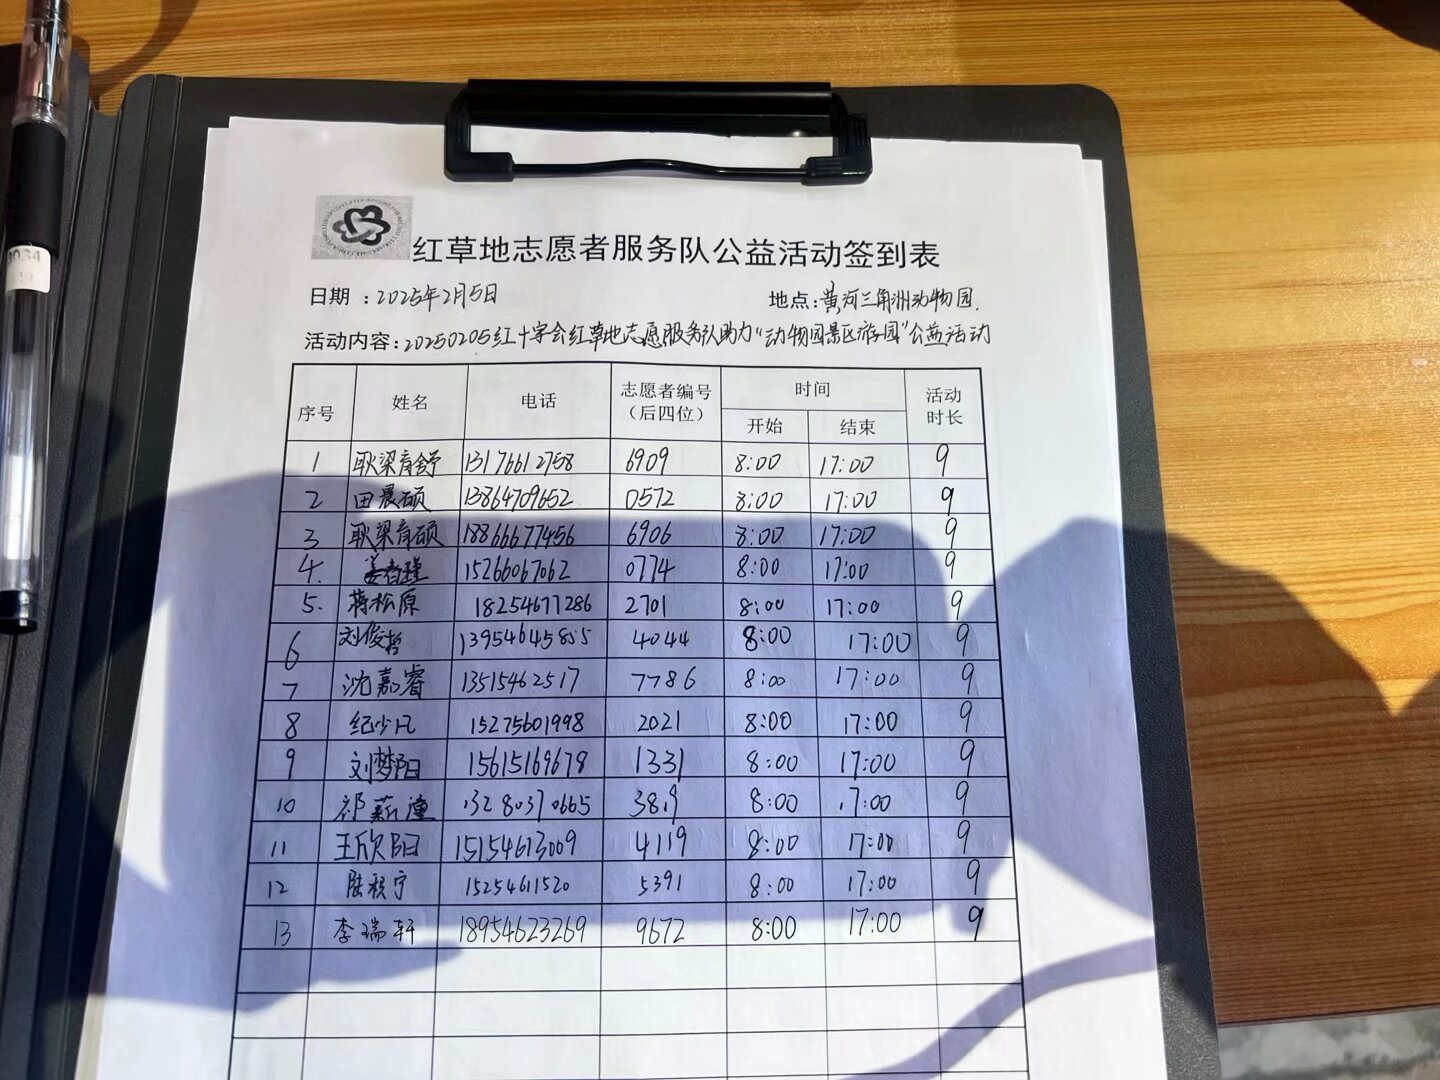 红草地志愿者服务队公益活动签到表
日期：2025年2月5日 地点：黄河三角洲动物园.
活动内容：20250205红十字会红草地志愿服务队助力“动物园景区游园”公益活动
序号 姓名 电话 志愿者编号（后四位） 时间 活动时长
开始 结束
1 耿梁育舒 13176612758 6909 8:00 17:00 9
2 田晨硕 13864709652 0572 8:00 17:00 9
3 耿梁育硕 18866677456 6906 8:00 17:00 9
4. 15266067062 0774 8:00 17:00 9
5. 蒋松原 18254677286 2701 8:00 17:00 9
6 刘俊哲 13954645855 4044 8:00 17:00 9
7 沈嘉睿 13515462517 7786 8:00 17:00 9
8 纪少凡 15275601998 2021 8:00 17:00 9
9 刘梦阳 15615169678 1331 8:00 17:00 9
10 祁薪潼 13280370665 3819 8:00 17:00 9
11 王欣阳 15154673009 4119 8:00 17:00 9
12 15254611520 5391 8:00 17:00 9
13 李瑞轩 18954623269 9672 8:00 17:00 9